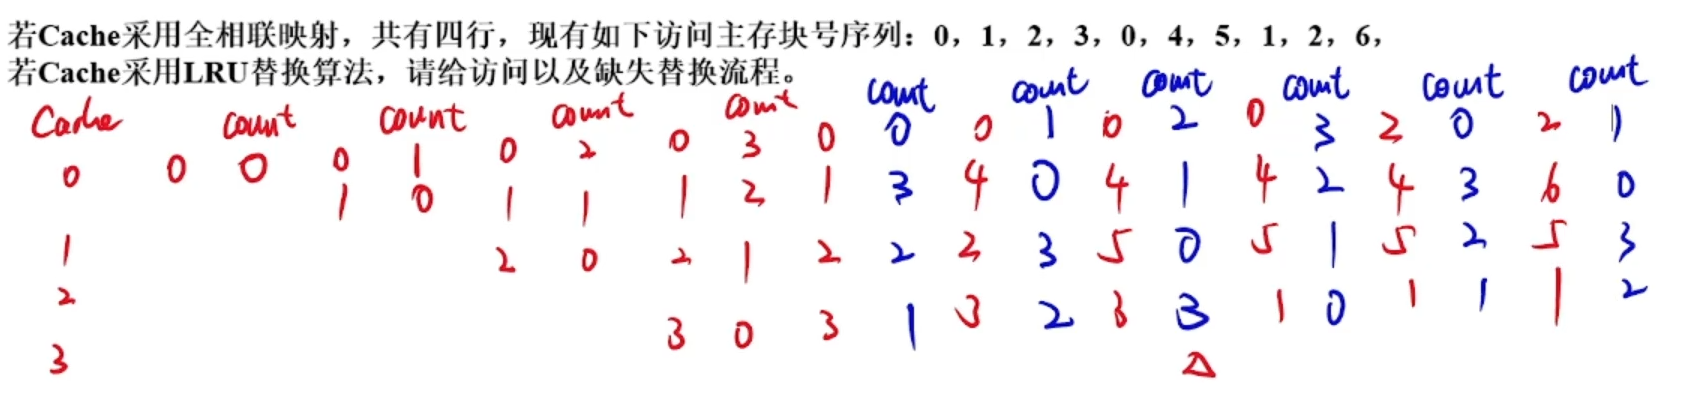 若Cache采用全相联映射，共有四行，现有如下访问主存块号序列：0，1，2，3，0，4，5，1，2，6，
若Cache采用LRU替换算法，请给访问以及缺失替换流程。
Cache count count count count count count count count count count
0 0 0 0 1 0 2 0 3 0 0 0 1 0 2 0 3 2 0 2 1
1 0 1 1 1 2 1 3 4 0 4 1 4 2 4 3 6 0
1 2 0 2 1 2 2 2 3 5 0 5 1 5 2 5 3
2 3 0 3 1 3 2 3 3 1 0 1 1 1 2
3 Δ